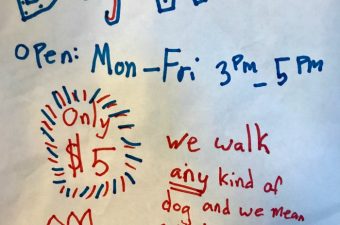 Open: Mon-Fri 3pm-5pm
Only
$5
We walk
any kind of
dog and we mean